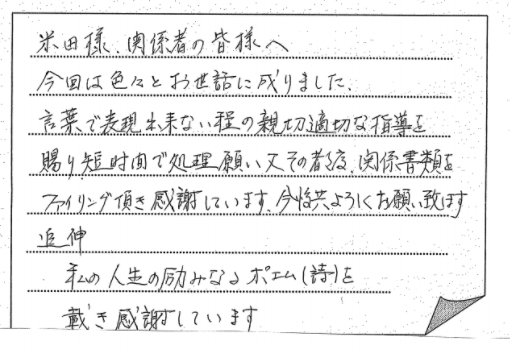 米田様、関係者の皆様へ
今回は色々とお世話に成りました、
言葉で表現出来ない程の親切適切な指導を
賜り、短時間で処理願い又その都度、関係書類を
ファイリング頂き感謝しています、今後共よろしくお願い致します
追伸
私の人生の励みなるポエム(詩)を
戴き感謝しています